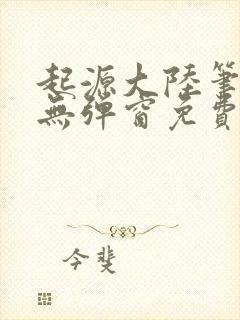 起源大陸筆
無彈窗免費
今斐